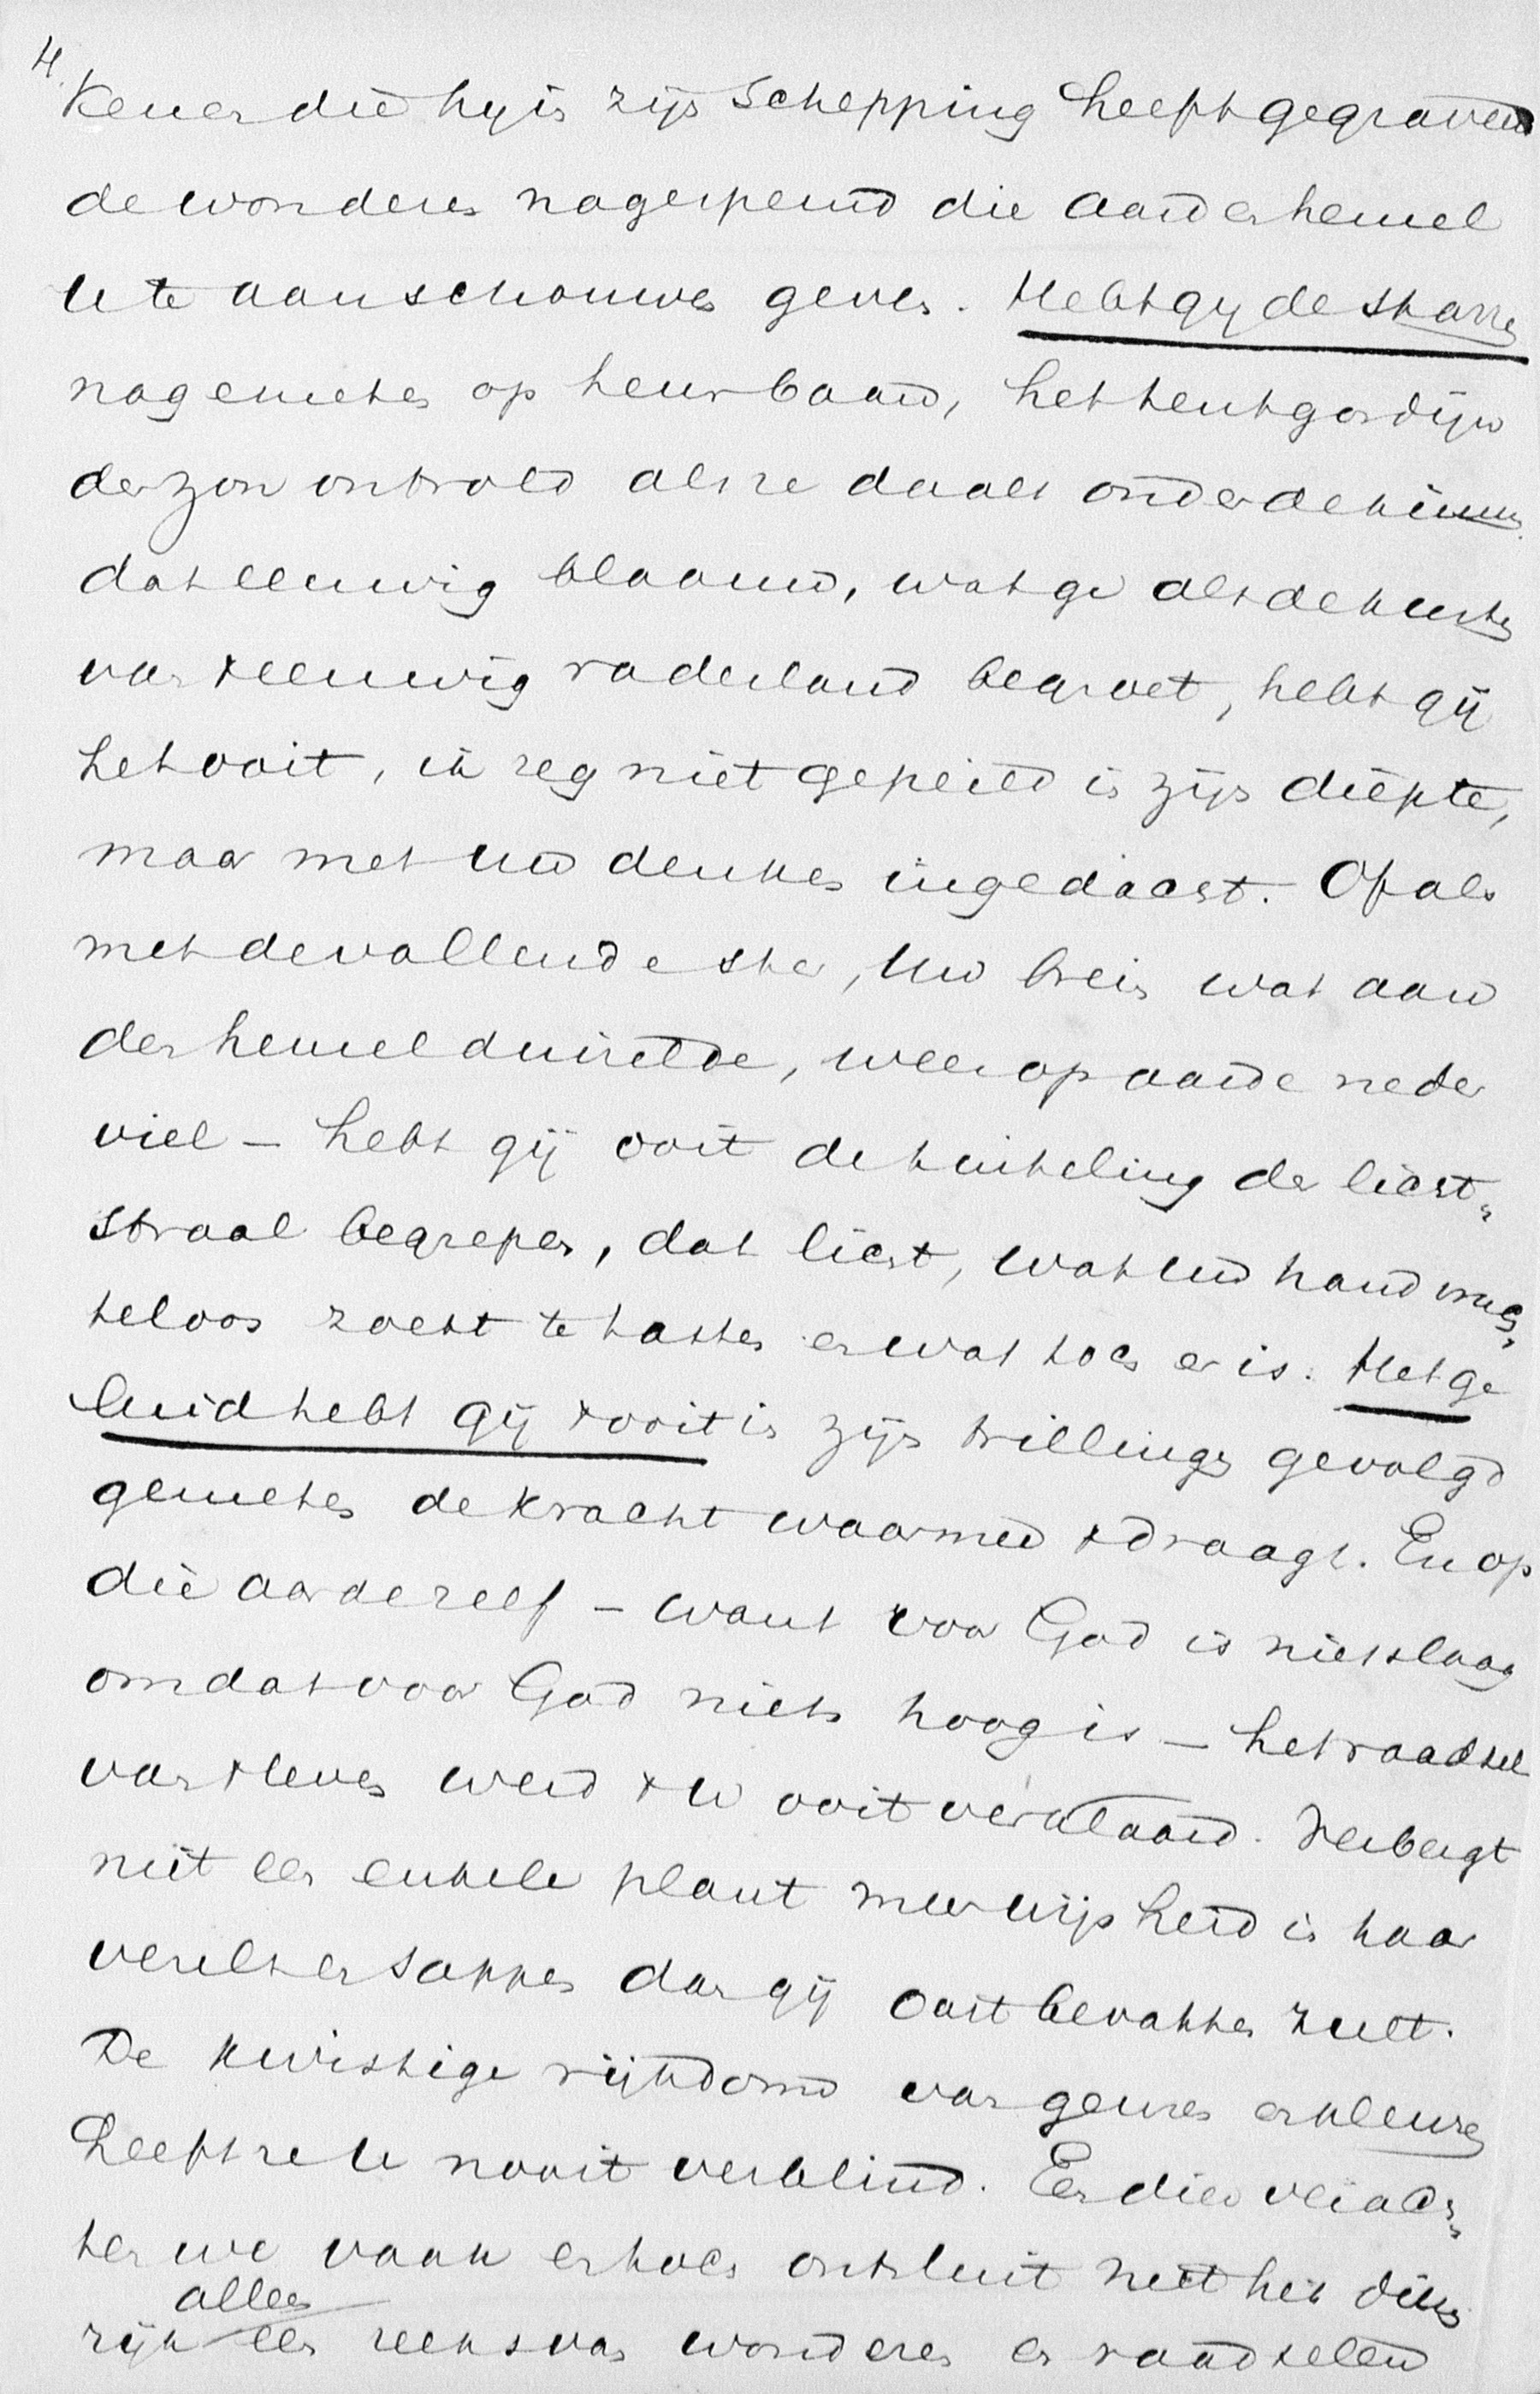 4.
kenen die hy in zijn Schepping heeft gegraveerd
de wonderen nagespeurd die aard en hemel
U te aanschouwen geven. Hebt gij de starren
nagemeten op heur baan, het tentgordijn
der zon ontrold als ze daalt onder de kimmen
dat eeuwig blaauw, wat ge als de kusten
van 't eeuwig vaderland begroet, hebt gij
het ooit, ik zeg niet gepeild in zijn diepte,
maar met uw denken ingedacht. Of als
met de vallende ster, Uw brein wat aan
den hemel duizelde, weer op aarde neder
viel – hebt gij ooit de tinteling der licht-
straal begrepen, dat licht, wat uw hand vruch-
teloos zoekt te tasten en wat toch er is. Het ge
luid hebt gij 't ooit in zijn trillingen gevolgd
gemeten de kracht waarmee 't draagt. En op
die aarde zelf – want voor God is niets laag
omdat voor God niets hoog is – het raadsel
van 't leven werd 't U ooit verklaard. Verbergt
niet een enkele plant meer wijsheid in haar
vezels en sappen dan gij ooit bevatten zult.
De kwistige rijkdom van geuren en kleuren
heeft ze U nooit verblind. En dien verach-
ten we vaak en toch ontsluit niet het dieren
rijk alleen een reeks van wonderen en raadselen